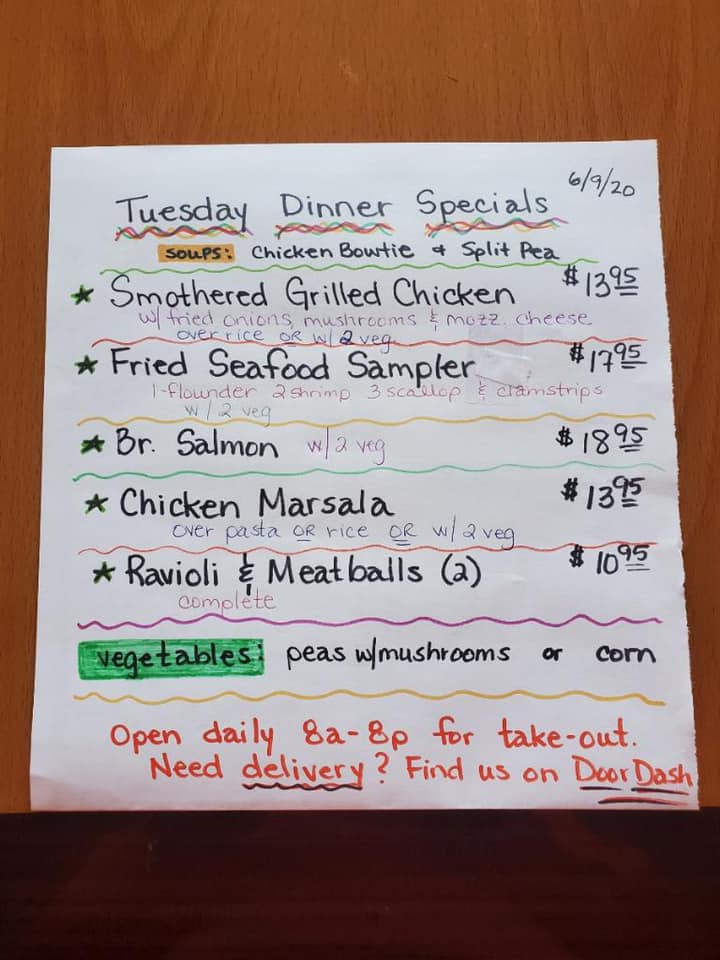 6/9/20
Tuesday Dinner Specials
SOUPS: Chicken Bowtie & Split Pea
★ Smothered Grilled Chicken $13.95
w/ fried onions, mushrooms & mozz. cheese
over rice OR w/ 2 veg
★ Fried Seafood Sampler $17.95
1-flounder 2 shrimp 3 scallop & clamstrips
w/ 2 veg
★ Br. Salmon w/ 2 veg $18.95
★ Chicken Marsala $13.95
over pasta OR rice OR w/ 2 veg
★ Ravioli & Meatballs (2) $10.95
complete
vegetables: peas w/mushrooms or corn
Open daily 8a-8p for take-out.
Need delivery? Find us on DoorDash